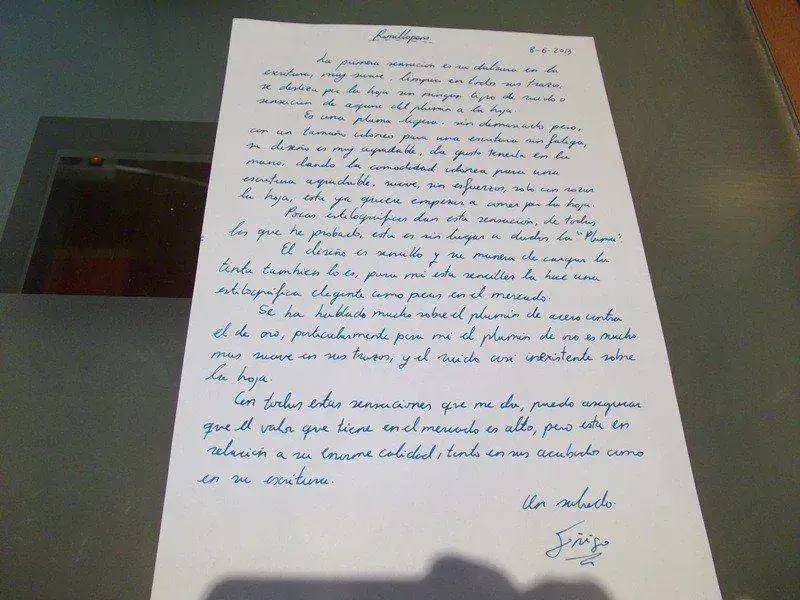 Romillopens
8-6-2013
La primera sensacion es su dulzura en la
escritura, muy suave, limpia en todos sus trazos,
se desliza por la hoja sin ningun tipo de ruido o
sensacion de agarre del plumin a la hoja.
Es una pluma ligera, sin demasiado peso,
con un tamaño idoneo para una escritura sin fatiga,
su diseño es muy agradable, da gusto tenerla en la
mano, dando la comodidad idonea para una
escritura agradable, suave, sin esfuerzos, solo con rozar
la hoja, esta ya quiere empezar a correr por la hoja.
Pocas estilográficas dan esta sensación, de todas
las que he probado, esta es sin lugar a dudas la "Pluma".
El diseño es sencillo y su manera de cargar la
tinta tambien lo es, para mi esta sencillez la hace una
estilográfica elegante como pocas en el mercado.
Se ha hablado mucho sobre el plumin de acero contra
el de oro, particularmente para mi el plumin de oro es mucho
mas suave en sus trazos, y el ruido casi inexistente sobre
la hoja.
Con todas estas sensaciones que me da, puedo asegurar
que el valor que tiene en el mercado es alto, pero esta en
relación a su enorme calidad, tanto en sus acabados como
en su escritura.
Un saludo.
Iñigo